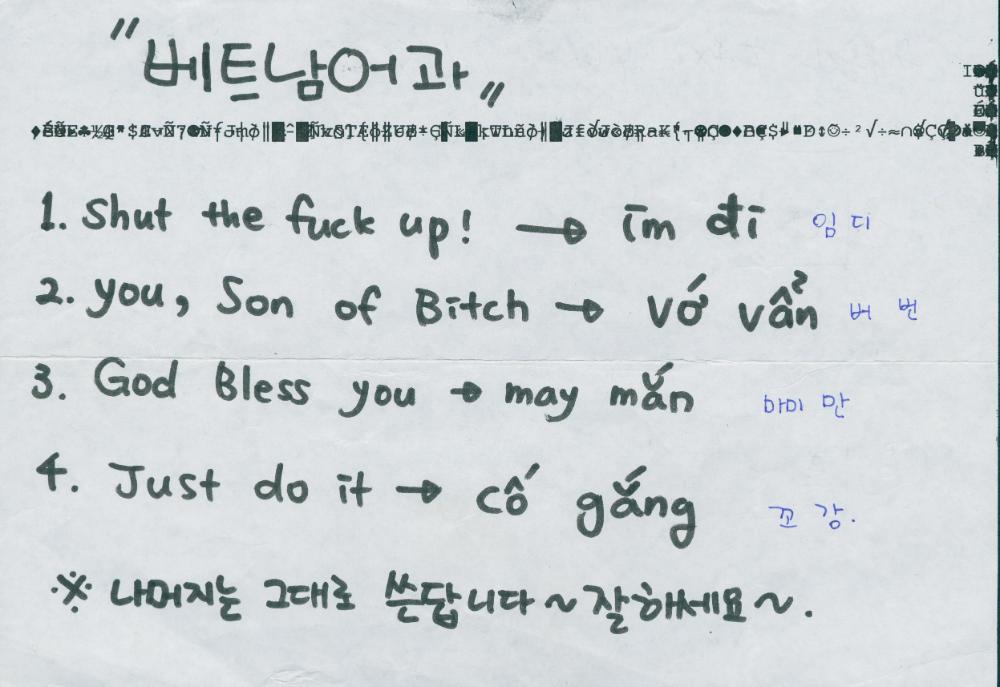 "베트남어과"
1. Shut the fuck up! → im đi 임 디
2. you, Son of Bitch → vớ vẩn 버 번
3. God Bless you → may mắn 마이 만
4. Just do it → cố gắng 꼬 강.
※ 나머지는 그대로 쓴답니다~잘하세요~.